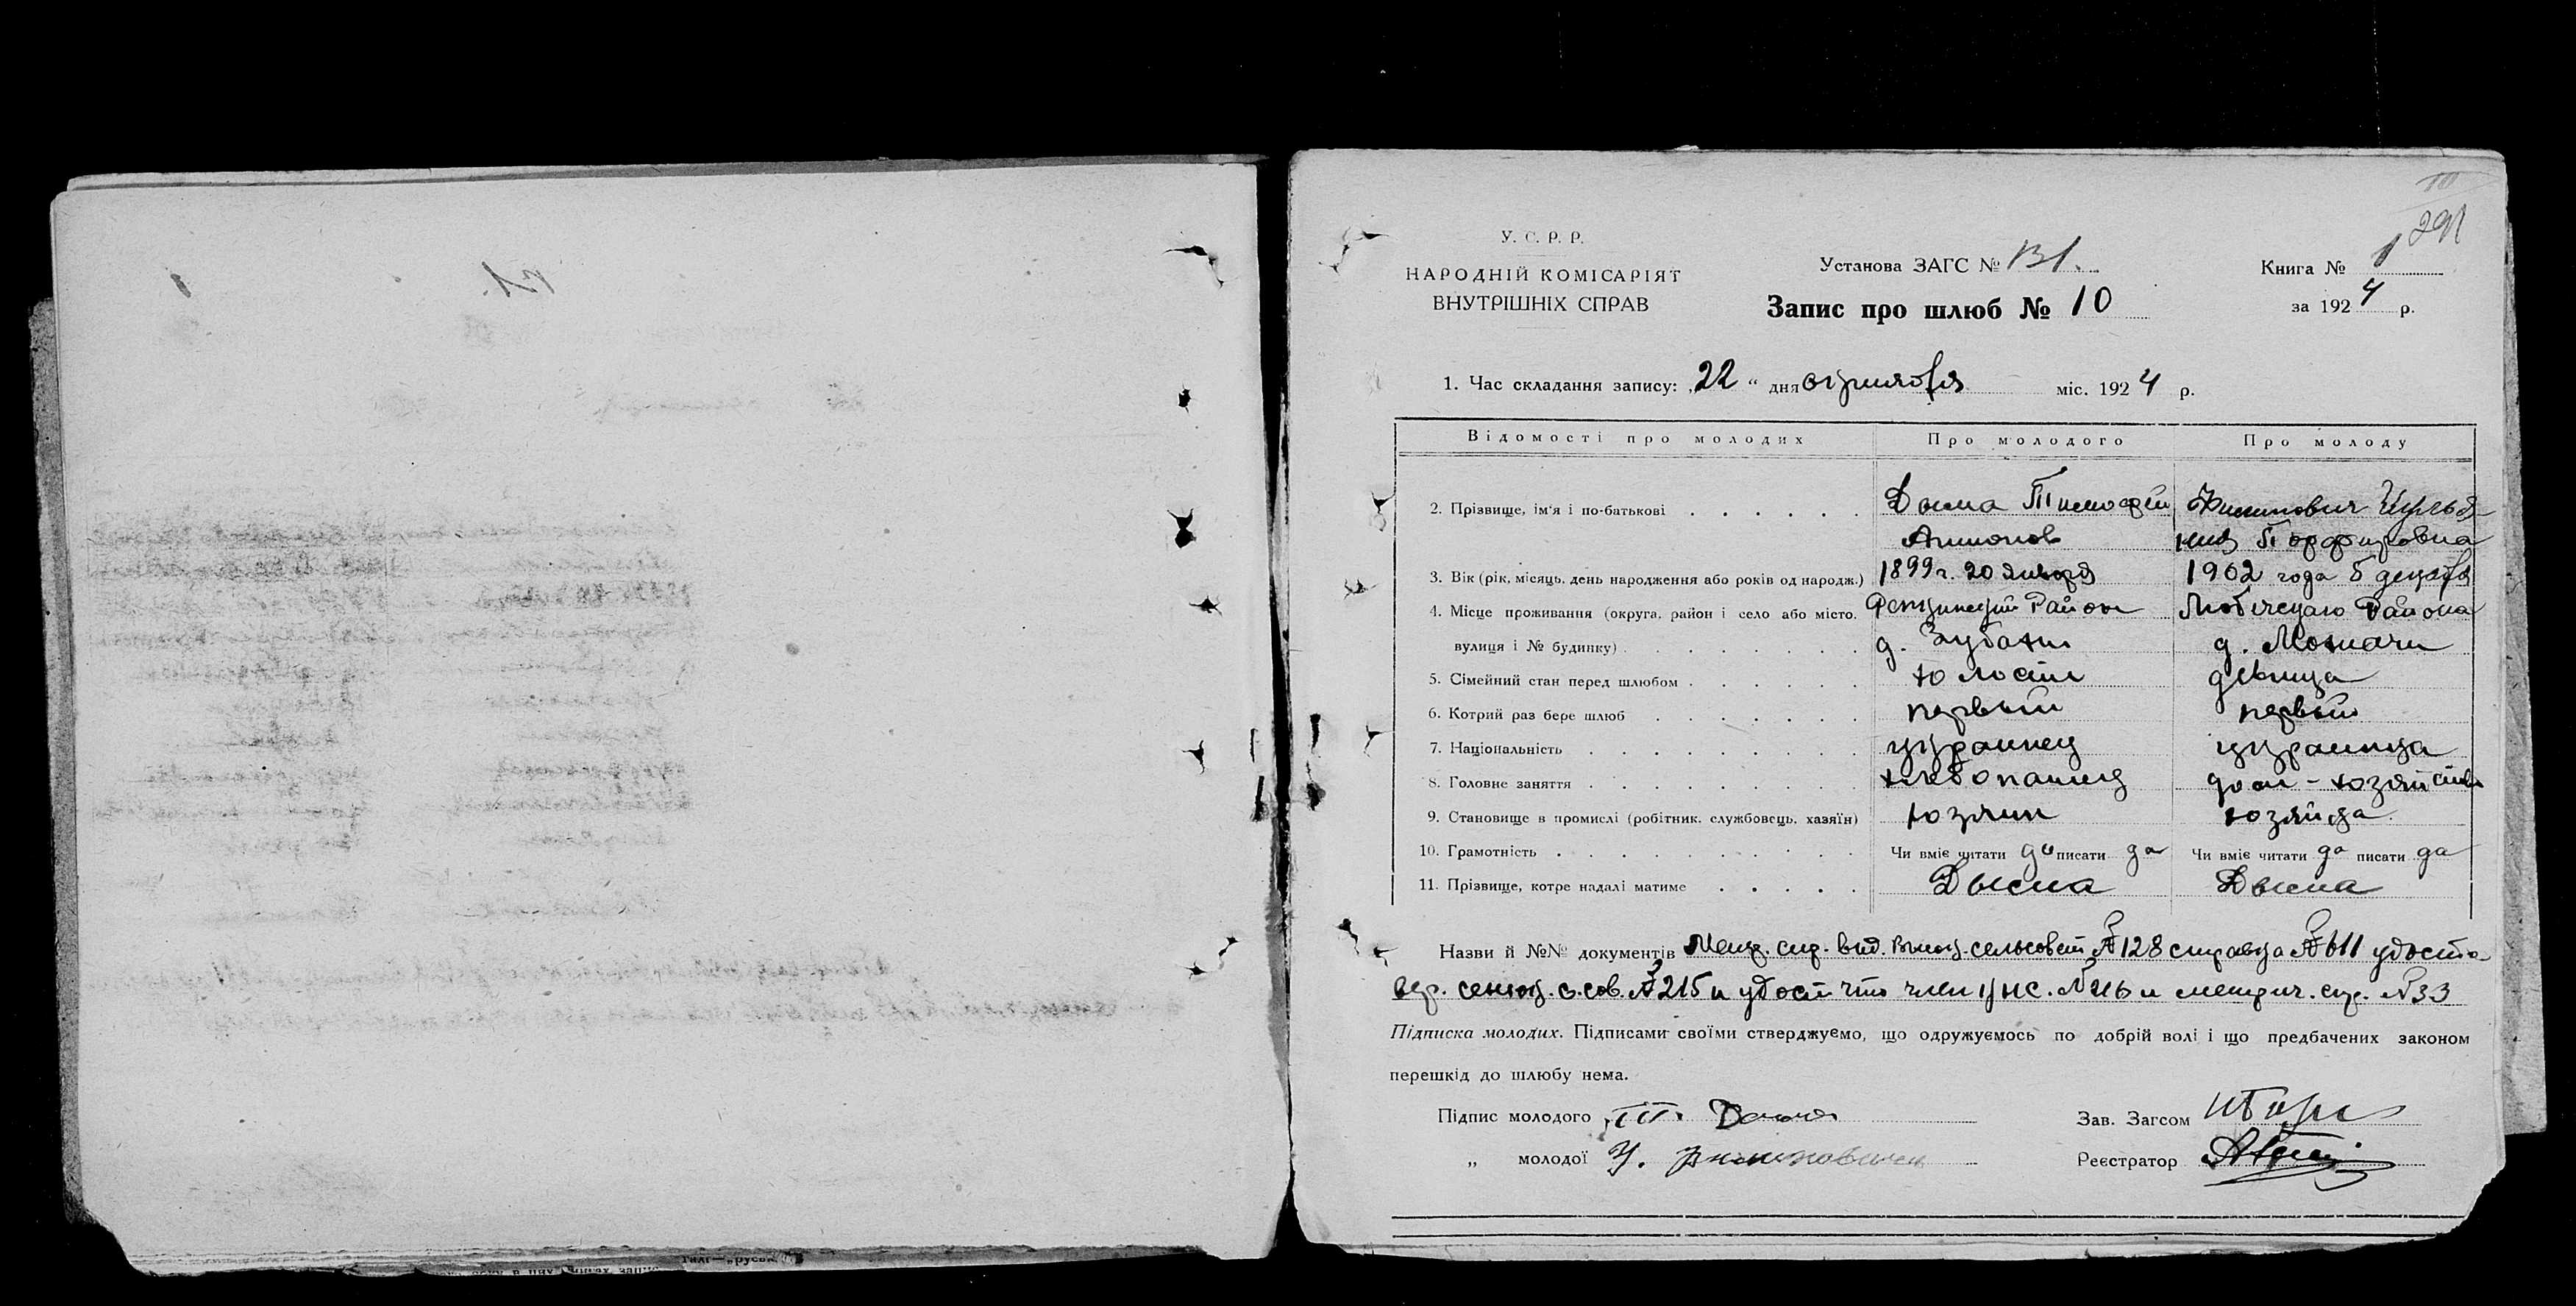 10
291
У. С. Р. Р.
НАРОДНІЙ КОМІСАРІЯТ
ВНУТРІШНІХ СПРАВ
Установа ЗАГС №
Запис про шлюб № 10
Книга № 1
за 1924 р.
1. Час складання запису: „22 " дня октября міс. 1924 р.
Відомості про молодих Про молодого Про молоду
2. Прізвище, ім'я і по-батькові Дыма Тимофей Филипович Иулья-
ния Порфировна
3. Вік (рік, місяць, день народження або років од народж.) 1899 г. 20 января 1902 года 5 декабря
4. Місце проживання (округа, район і село або місто, Район Любечскаго Района
вулиця і № будинку) д. д. Мохначи
5. Сімейний стан перед шлюбом холост девица
6. Котрий раз бере шлюб первый первый
7. Національність украинец украинца
8. Головне заняття хлебопашец дом-хозяйство
9. Становище в промислі (робітник, службовець, хазяїн) хозяин хозяйка
10. Грамотність Чи вміє читати да писати да Чи вміє читати да писати да
11. Прізвище, котре надалі матиме Дыма Дыма
Назви й №№ документів Метр. спр. выд. сельсовет № 128 справка № 611 удосто-
вер. с.сов. № 215 и удост что член и метрич. спр. № 33
Підписка молодих. Підписами своїми стверджуємо, що одружуємось по добрій волі і що предбачених законом
перешкід до шлюбу нема.
Підпис молодого Т. Дыма Зав. Загсом
„ молодої У. Филипович Реєстратор